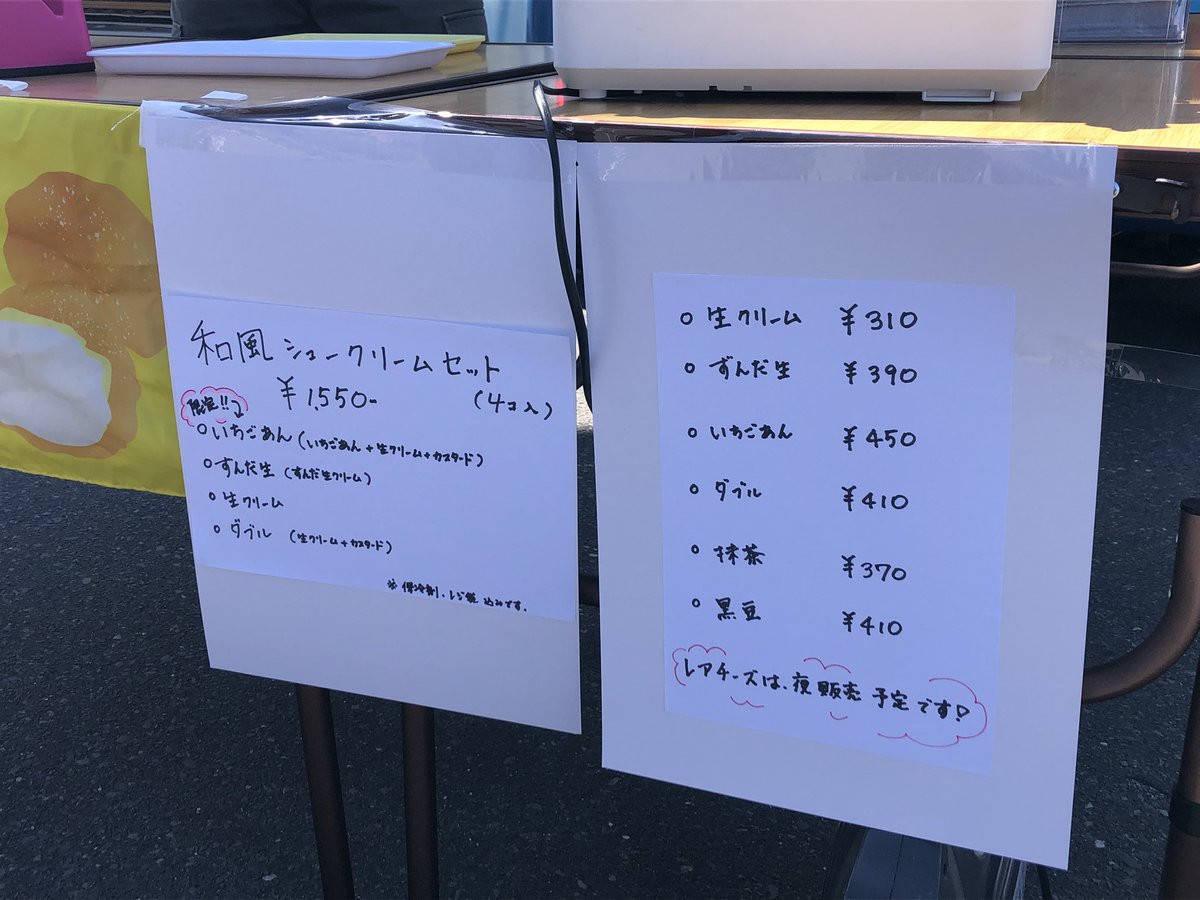 和風シュークリームセット
¥1,550-
(4コ入)
限定!!
○いちごあん(いちごあん+生クリーム+カスタード)
○ずんだ生(ずんだ生クリーム)
○生クリーム
○ダブル(生クリーム+カスタード)
※保冷剤、レジ袋込みです。
○生クリーム ¥310
○ずんだ生 ¥390
○いちごあん ¥450
○ダブル ¥410
○抹茶 ¥370
○黒豆 ¥410
レアチーズは、夜販売予定です!